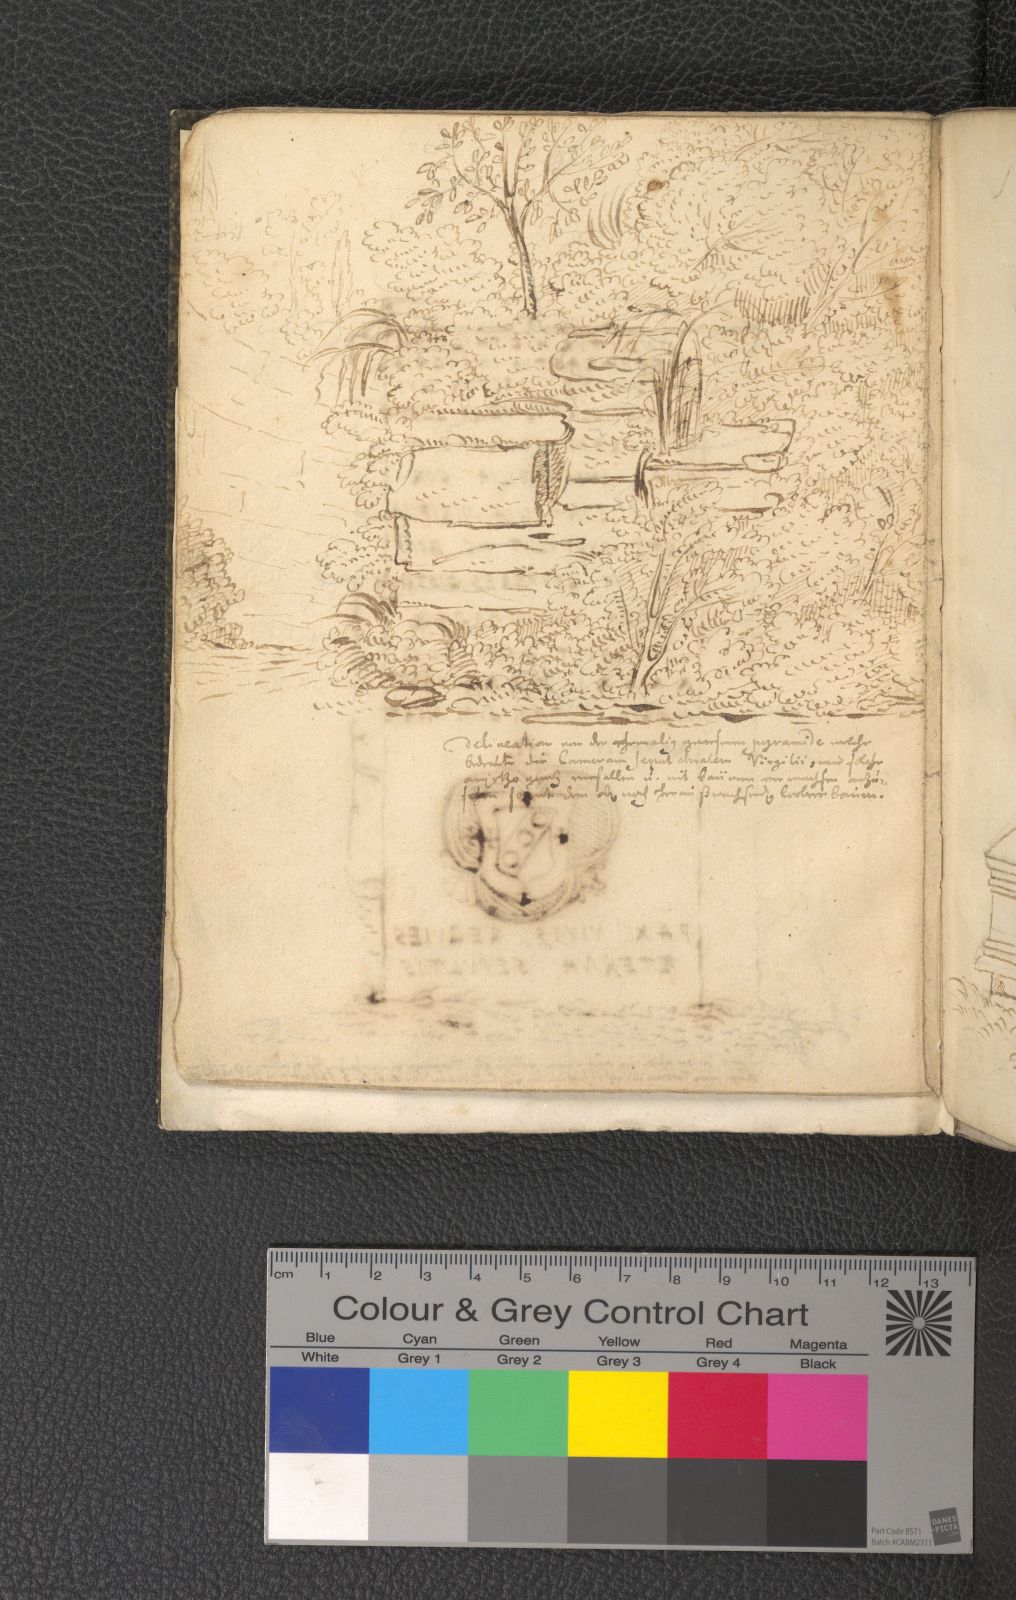 Delineation von der ehemalig gewesenen pyramide welche
bedeckte die Cameram sepulchralem Virgilii, und solche
anjetzo gantz verfallen u. mit baümen verwachsen anzu-
sehen sampt dem
PAX VIVIS REQUIES
ÆTERNA SEPULTIS
cm 1 2 3 4 5 6 7 8 9 10 11 12 13
Colour & Grey Control Chart
Blue Cyan Green Yellow Red Magenta
White Grey 1 Grey 2 Grey 3 Grey 4 Black
Part Code BST1
Batch #CABM2311
DANES
-PICTA